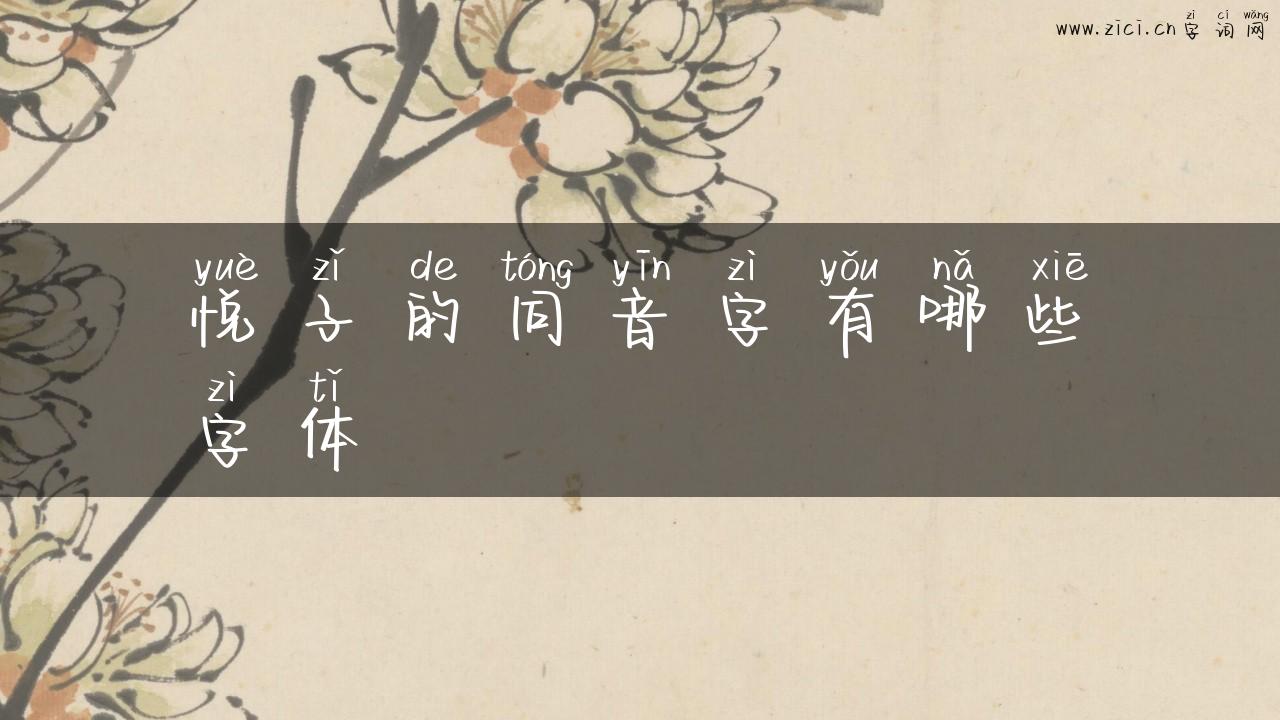 zì cí wǎng
www.zici.cn 字词网
yuè zǐ de tóng yīn zì yǒu nǎ xiē
悦子的同音字有哪些
zì tǐ
字体